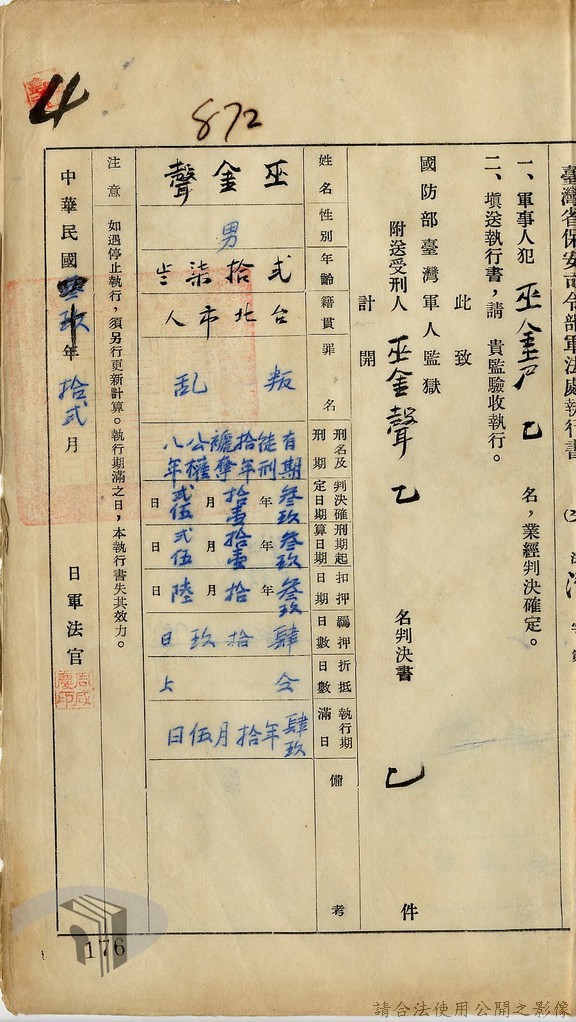 臺灣省保安司令部軍法處執行書
一、軍事人犯 巫金声 乙 名，業經判決確定。
二、填送執行書，請 貴監驗收執行。
此致
國防部臺灣軍人監獄
附送受刑人 巫金聲 乙 名判決書 乙 件
計開
姓名 巫金聲
性別 男
年齡 弍拾柒
籍貫 台北市人
罪名 叛乱
刑名及刑期 有期徒刑拾年褫奪公權八年
判決確定日期 叁玖年拾壹月弍伍日
刑期起算日期 叁玖年拾壹月弍伍日
扣押日期 叁玖年拾月陸日
羈押日數 肆拾玖日
折抵日數 仝上
執行期滿日 肆玖年拾月伍日
備考
注意 如遇停止執行，須另行更新計算。執行期滿之日，本執行書失其效力。
中華民國 叁玖 年 拾弍 月 日 軍法官
周咸慶印
4
872
176
請合法使用公開之影像